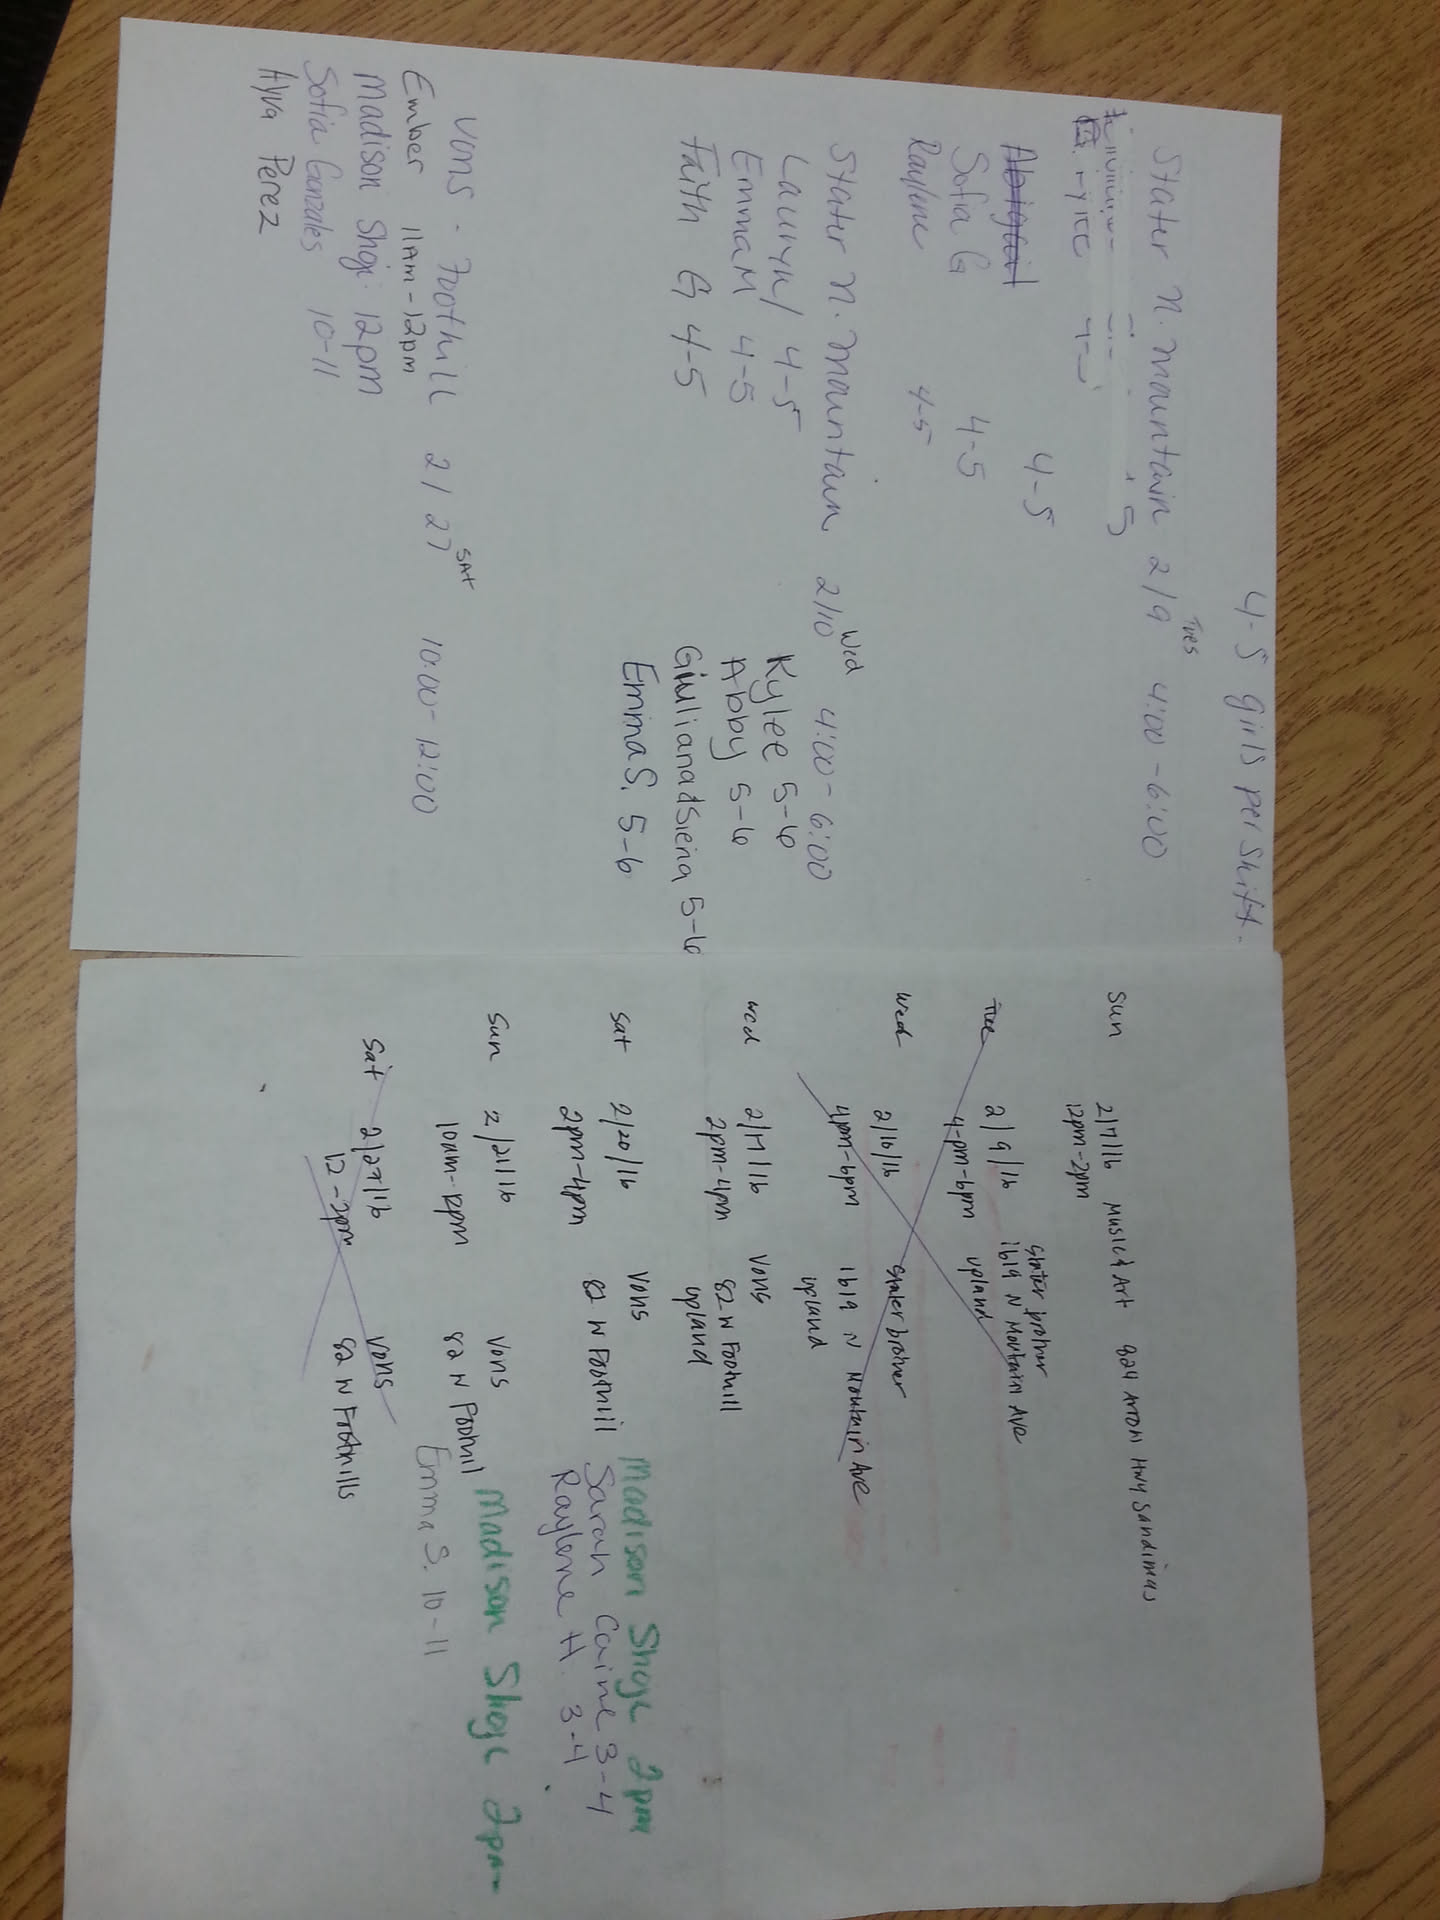 4-5 girls per shift.
Stater N. Mountain 2/9 Tues 4:00-6:00
5
4-5
Sofia G 4-5
Raylene 4-5
Stater N. Mountain 2/10 Wed 4:00-6:00
Lauryn 4-5 Kylee 5-6
Emma M 4-5 Abby 5-6
Faith G 4-5 Giuliana Siena 5-6
Emma S. 5-6
Vons - Foothill 2/27 SAt 10:00-12:00
Ember 11AM-12pm
Madison Shoji 12pm
Sofia Gonzales 10-11
Perez
Sun 2/7/16 Music & Art 824 Arrow Hwy Sandimas
12pm-2pm
Tue 2/9/16 Stater brother
4-pm-6pm 1619 N Mountain Ave
upland
Wed Stater brother
4pm-6pm 1619 N Mountain Ave
upland
wed 2/17/16 Vons
2pm-4pm 82 W Foothill
upland
Sat 2/20/16 Vons Madison Shoji 2pm
2pm-4pm 82 W Foothill Sarah Caine 3-4
Raylene H. 3-4
Sun 2/21/16 Vons Madison Shoji 2pm
10am-12pm 82 W Foothil Emma S. 10-11
Sat 2/27/16 Vons
12-2pm 82 W Foothills